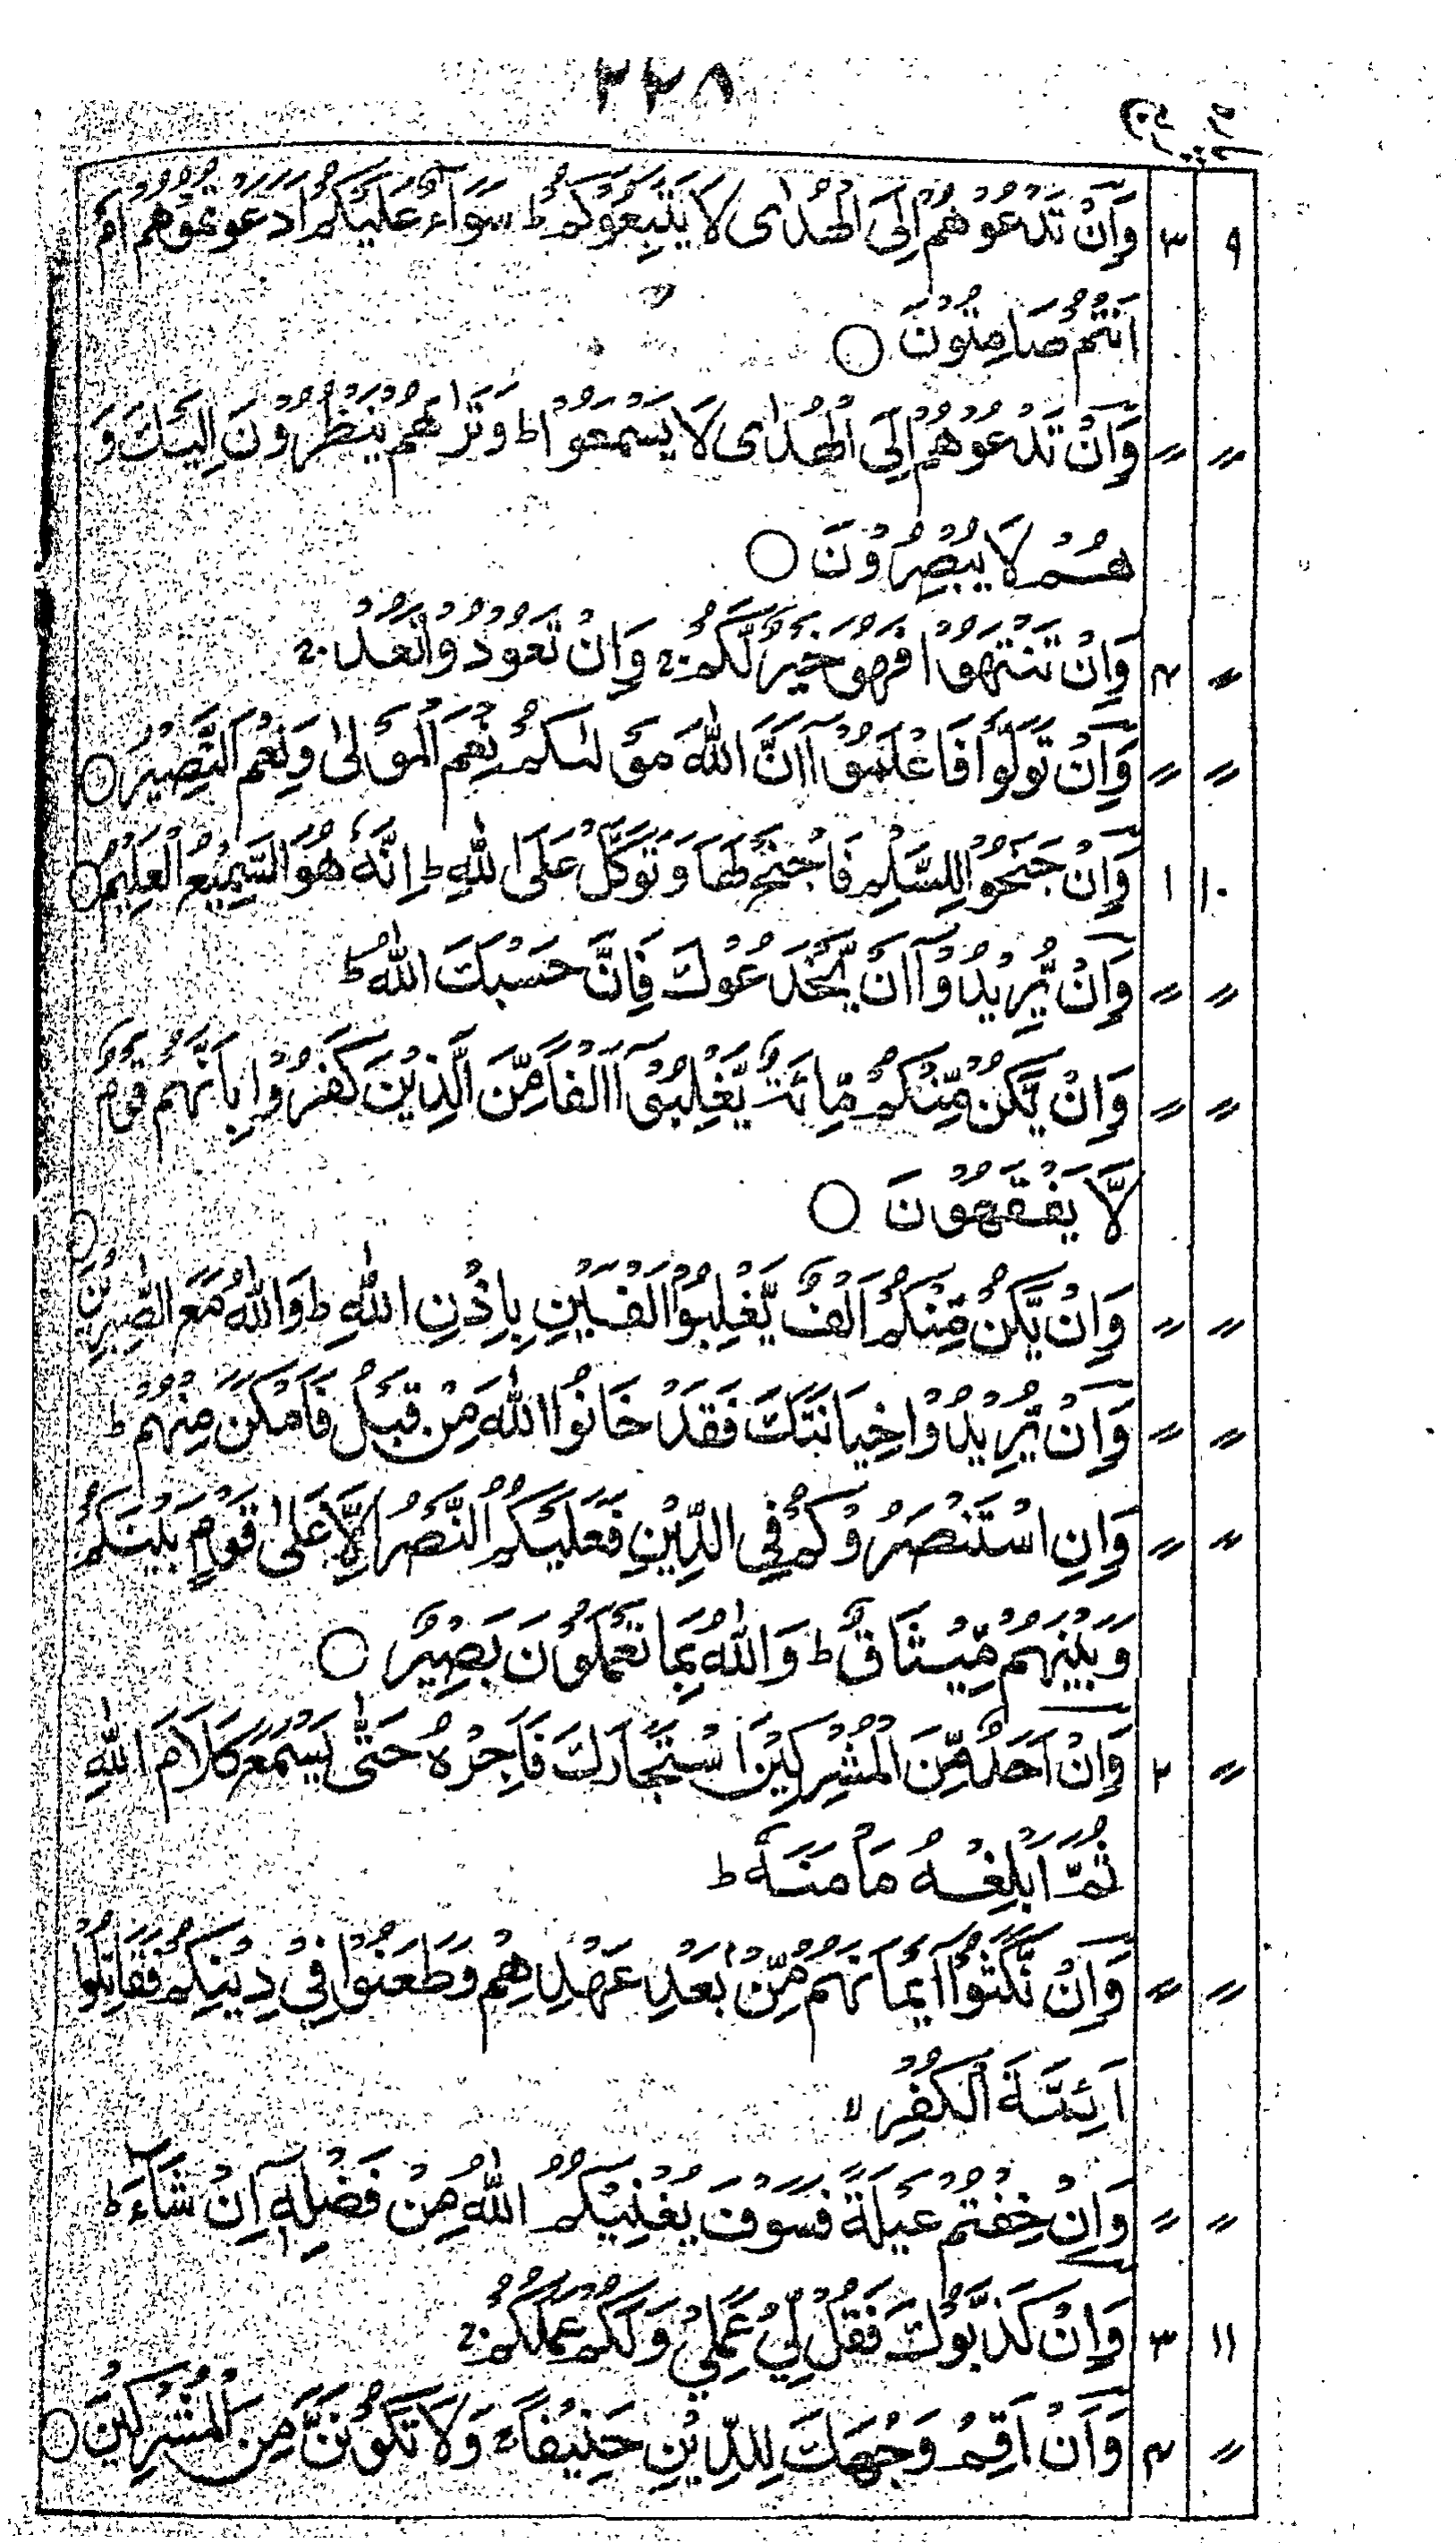 ۲۲۸
۹ ۳ وَاِنْ تَدْعُوْهُمْ اِلَى الْهُدٰى لَا يَتَّبِعُوْكُمْ ط سَوَآءٌ عَلَيْكُمْ اَدَعَوْتُمُوْهُمْ اَمْ
اَنْتُمْ صَامِتُوْنَ ○
〃 〃 وَاِنْ تَدْعُوْهُمْ اِلَى الْهُدٰى لَا يَسْمَعُوْا ط وَتَرٰهُمْ يَنْظُرُوْنَ اِلَيْكَ وَ
هُمْ لَا يُبْصِرُوْنَ ○
〃 ۴ وَاِنْ تَنْتَهُوْا فَهُوَ خَيْرٌ لَّكُمْ ج وَاِنْ تَعُوْدُوْا نَعُدْ ج
〃 〃 وَاِنْ تَوَلَّوْا فَاعْلَمُوْٓا اَنَّ اللّٰهَ مَوْلٰىكُمْ نِعْمَ الْمَوْلٰى وَنِعْمَ النَّصِيْرُ ○
۱۰ ۱ وَاِنْ جَنَحُوْا لِلسَّلْمِ فَاجْنَحْ لَهَا وَتَوَكَّلْ عَلَى اللّٰهِ ط اِنَّهٗ هُوَ السَّمِيْعُ الْعَلِيْمُ ○
〃 〃 وَاِنْ يُّرِيْدُوْٓا اَنْ يَّخْدَعُوْكَ فَاِنَّ حَسْبَكَ اللّٰهُ ط
〃 〃 وَاِنْ يَّكُنْ مِّنْكُمْ مِّائَةٌ يَّغْلِبُوْٓا اَلْفًا مِّنَ الَّذِيْنَ كَفَرُوْا بِاَنَّهُمْ قَوْمٌ
لَّا يَفْقَهُوْنَ ○
〃 〃 وَاِنْ يَّكُنْ مِّنْكُمْ اَلْفٌ يَّغْلِبُوْٓا اَلْفَيْنِ بِاِذْنِ اللّٰهِ ط وَاللّٰهُ مَعَ الصّٰبِرِيْنَ ○
〃 〃 وَاِنْ يُّرِيْدُوْا خِيَانَتَكَ فَقَدْ خَانُوا اللّٰهَ مِنْ قَبْلُ فَاَمْكَنَ مِنْهُمْ ط
〃 〃 وَاِنِ اسْتَنْصَرُوْكُمْ فِى الدِّيْنِ فَعَلَيْكُمُ النَّصْرُ اِلَّا عَلٰى قَوْمٍ بَيْنَكُمْ
وَبَيْنَهُمْ مِّيْثَاقٌ ط وَاللّٰهُ بِمَا تَعْمَلُوْنَ بَصِيْرٌ ○
〃 ۲ وَاِنْ اَحَدٌ مِّنَ الْمُشْرِكِيْنَ اسْتَجَارَكَ فَاَجِرْهُ حَتّٰى يَسْمَعَ كَلَامَ اللّٰهِ
ثُمَّ اَبْلِغْهُ مَاْمَنَهٗ ط
〃 〃 وَاِنْ نَّكَثُوْٓا اَيْمَانَهُمْ مِّنْۢ بَعْدِ عَهْدِهِمْ وَطَعَنُوْا فِىْ دِيْنِكُمْ فَقَاتِلُوْٓا
اَئِمَّةَ الْكُفْرِ لا
〃 〃 وَاِنْ خِفْتُمْ عَيْلَةً فَسَوْفَ يُغْنِيْكُمُ اللّٰهُ مِنْ فَضْلِهٖٓ اِنْ شَآءَ ط
۱۱ ۳ وَاِنْ كَذَّبُوْكَ فَقُلْ لِّىْ عَمَلِىْ وَلَكُمْ عَمَلُكُمْ ج
〃 ۴ وَاَنْ اَقِمْ وَجْهَكَ لِلدِّيْنِ حَنِيْفًا ج وَلَا تَكُوْنَنَّ مِنَ الْمُشْرِكِيْنَ ○